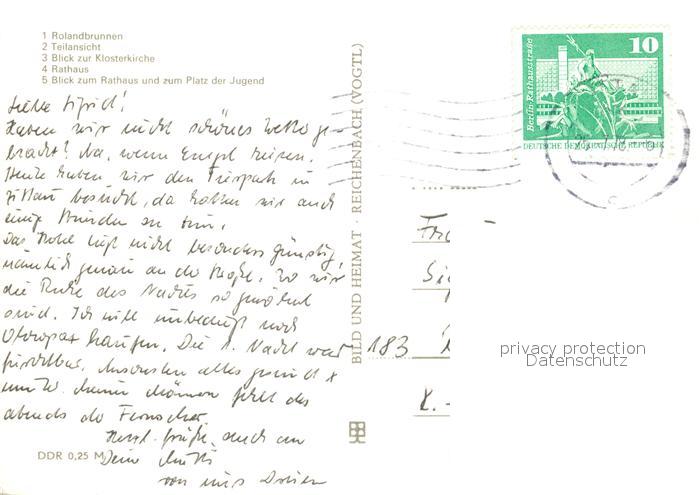 1 Rolandbrunnen
2 Teilansicht
3 Blick zur Klosterkirche
4 Rathaus
5 Blick zum Rathaus und zum Platz der Jugend
Liebe Sigrid!
Haben wir nicht schönes Wetter ge-
bracht? Na, wenn Engel reisen.
Heute haben wir den Tierpark in
Zittau besucht, da hatten wir auch
einige Stunden zu tun.
Das Hotel liegt nicht besonders günstig,
nämlich genau an der Straße, wo wir
die Ruhe des Nachts so gewöhnt
sind. Ich will unbedingt noch
Oropax kaufen. Die 1. Nacht war
furchtbar. Ansonsten alles gesund
Männern fehlt das
abends der Fernseher.
Herzl. Grüße auch an
Deine Mutti
von uns Dreien
DDR 0,25 M
BILD UND HEIMAT · REICHENBACH (VOGTL)
10
Berlin·Rathausstraße
DEUTSCHE DEMOKRATISCHE REPUBLIK
183
X.-
privacy protection
Datenschutz